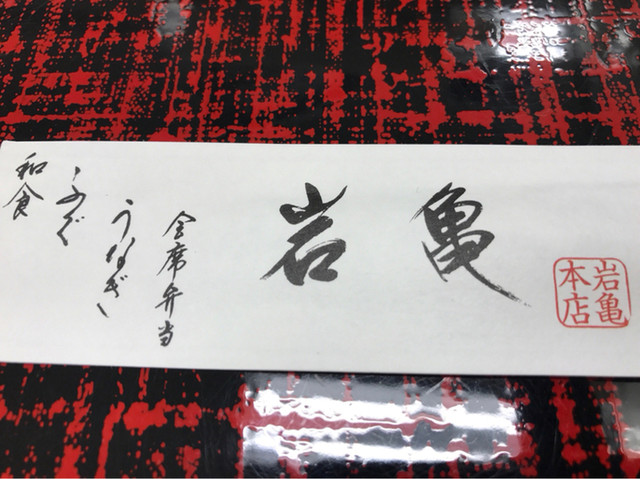 和食
ふぐ
うなぎ
会席弁当
岩亀
岩亀
本店